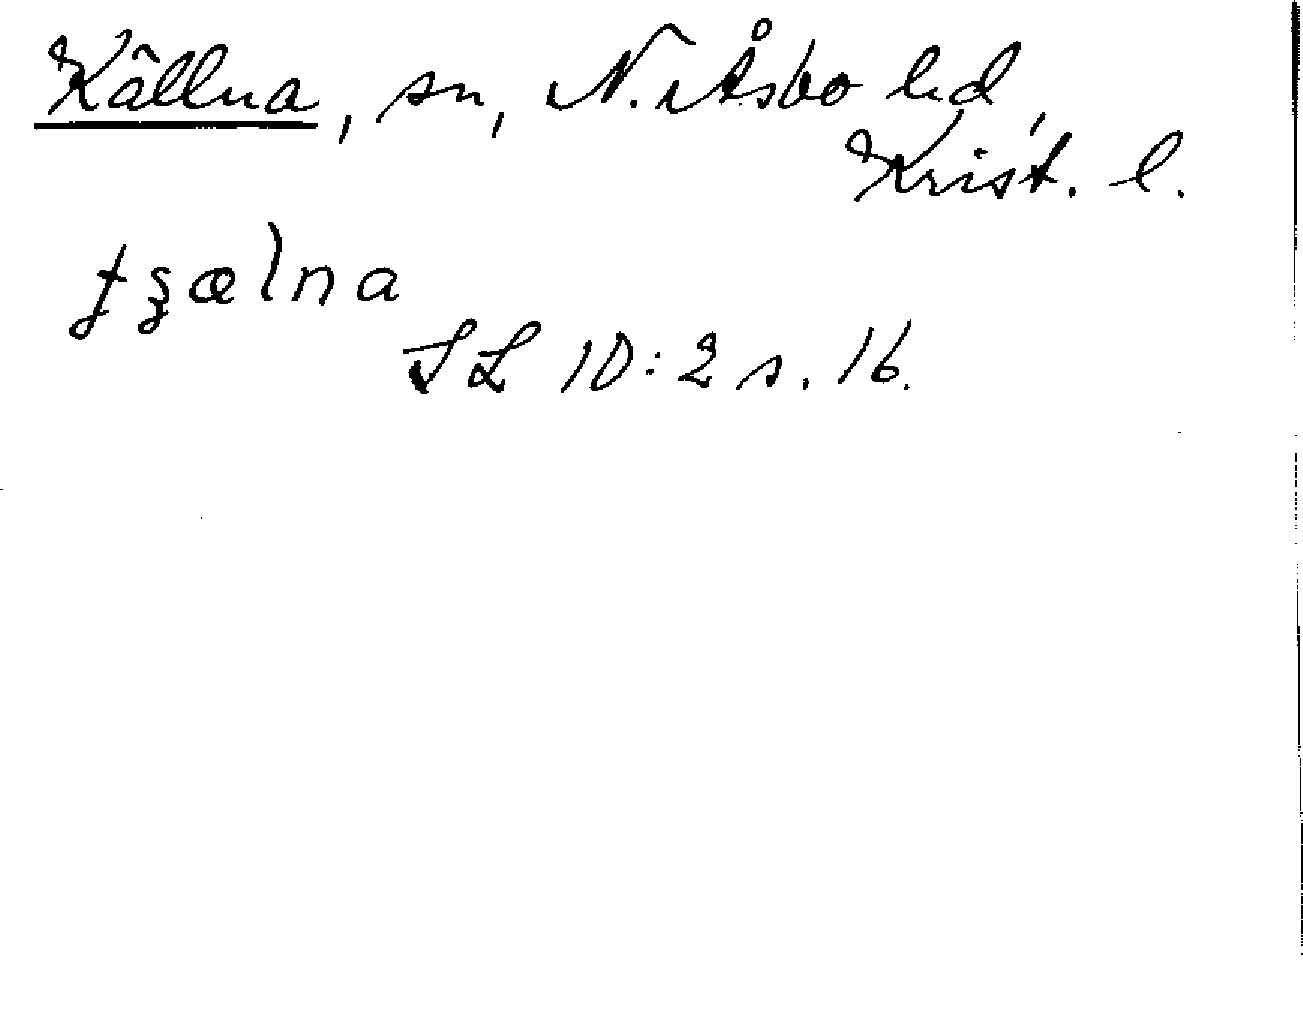 Källna, sn, N. Åsbo hd,
Krist. l.
tʂælna
SL 10:2 s. 16.